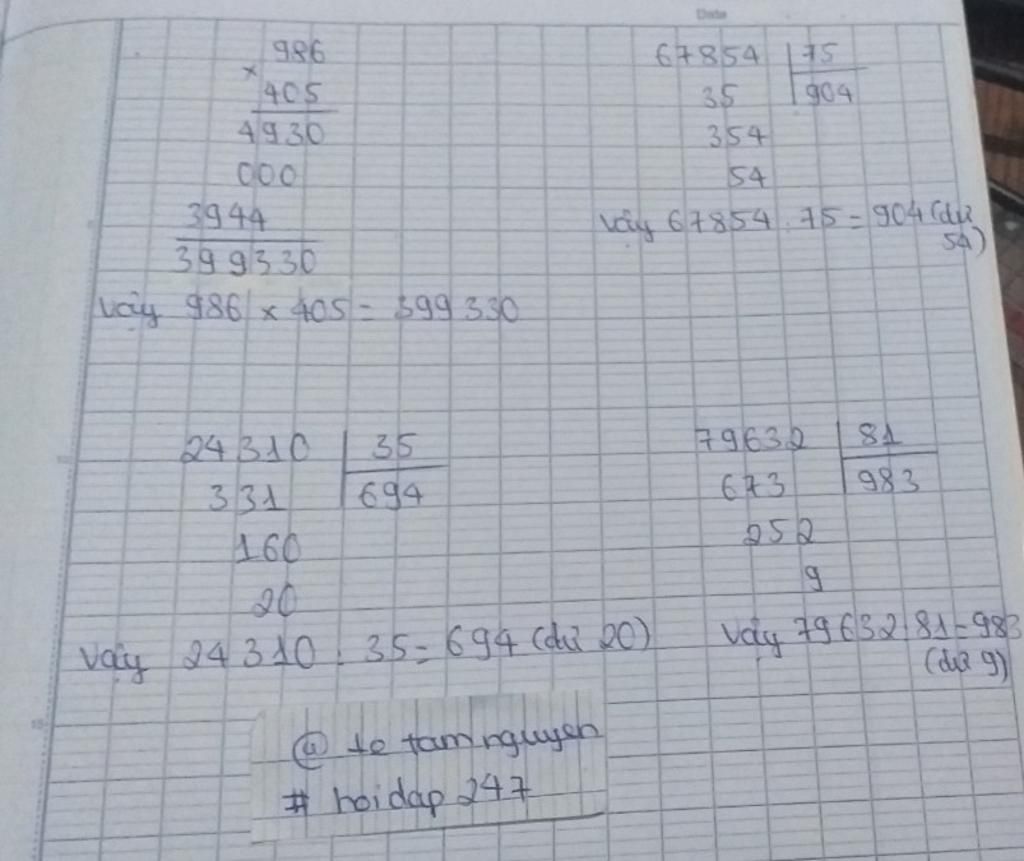 Date
986
×
405
4930
000
3944
399330
Vậy 986 × 405 = 399330
67854 75
35 904
354
54
Vậy 67854 : 75 = 904 (dư
54)
24310 35
331 694
160
20
Vậy 24310 : 35 = 694 (dư 20)
79632 81
673 983
252
9
Vậy 79632 : 81 = 983
(dư 9)
@ le tam nguyen
# hoidap 247